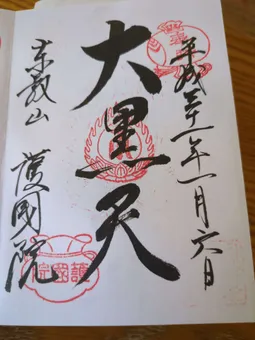 平成三十一年一月六日
大黒天
東叡山
護國院
護國院